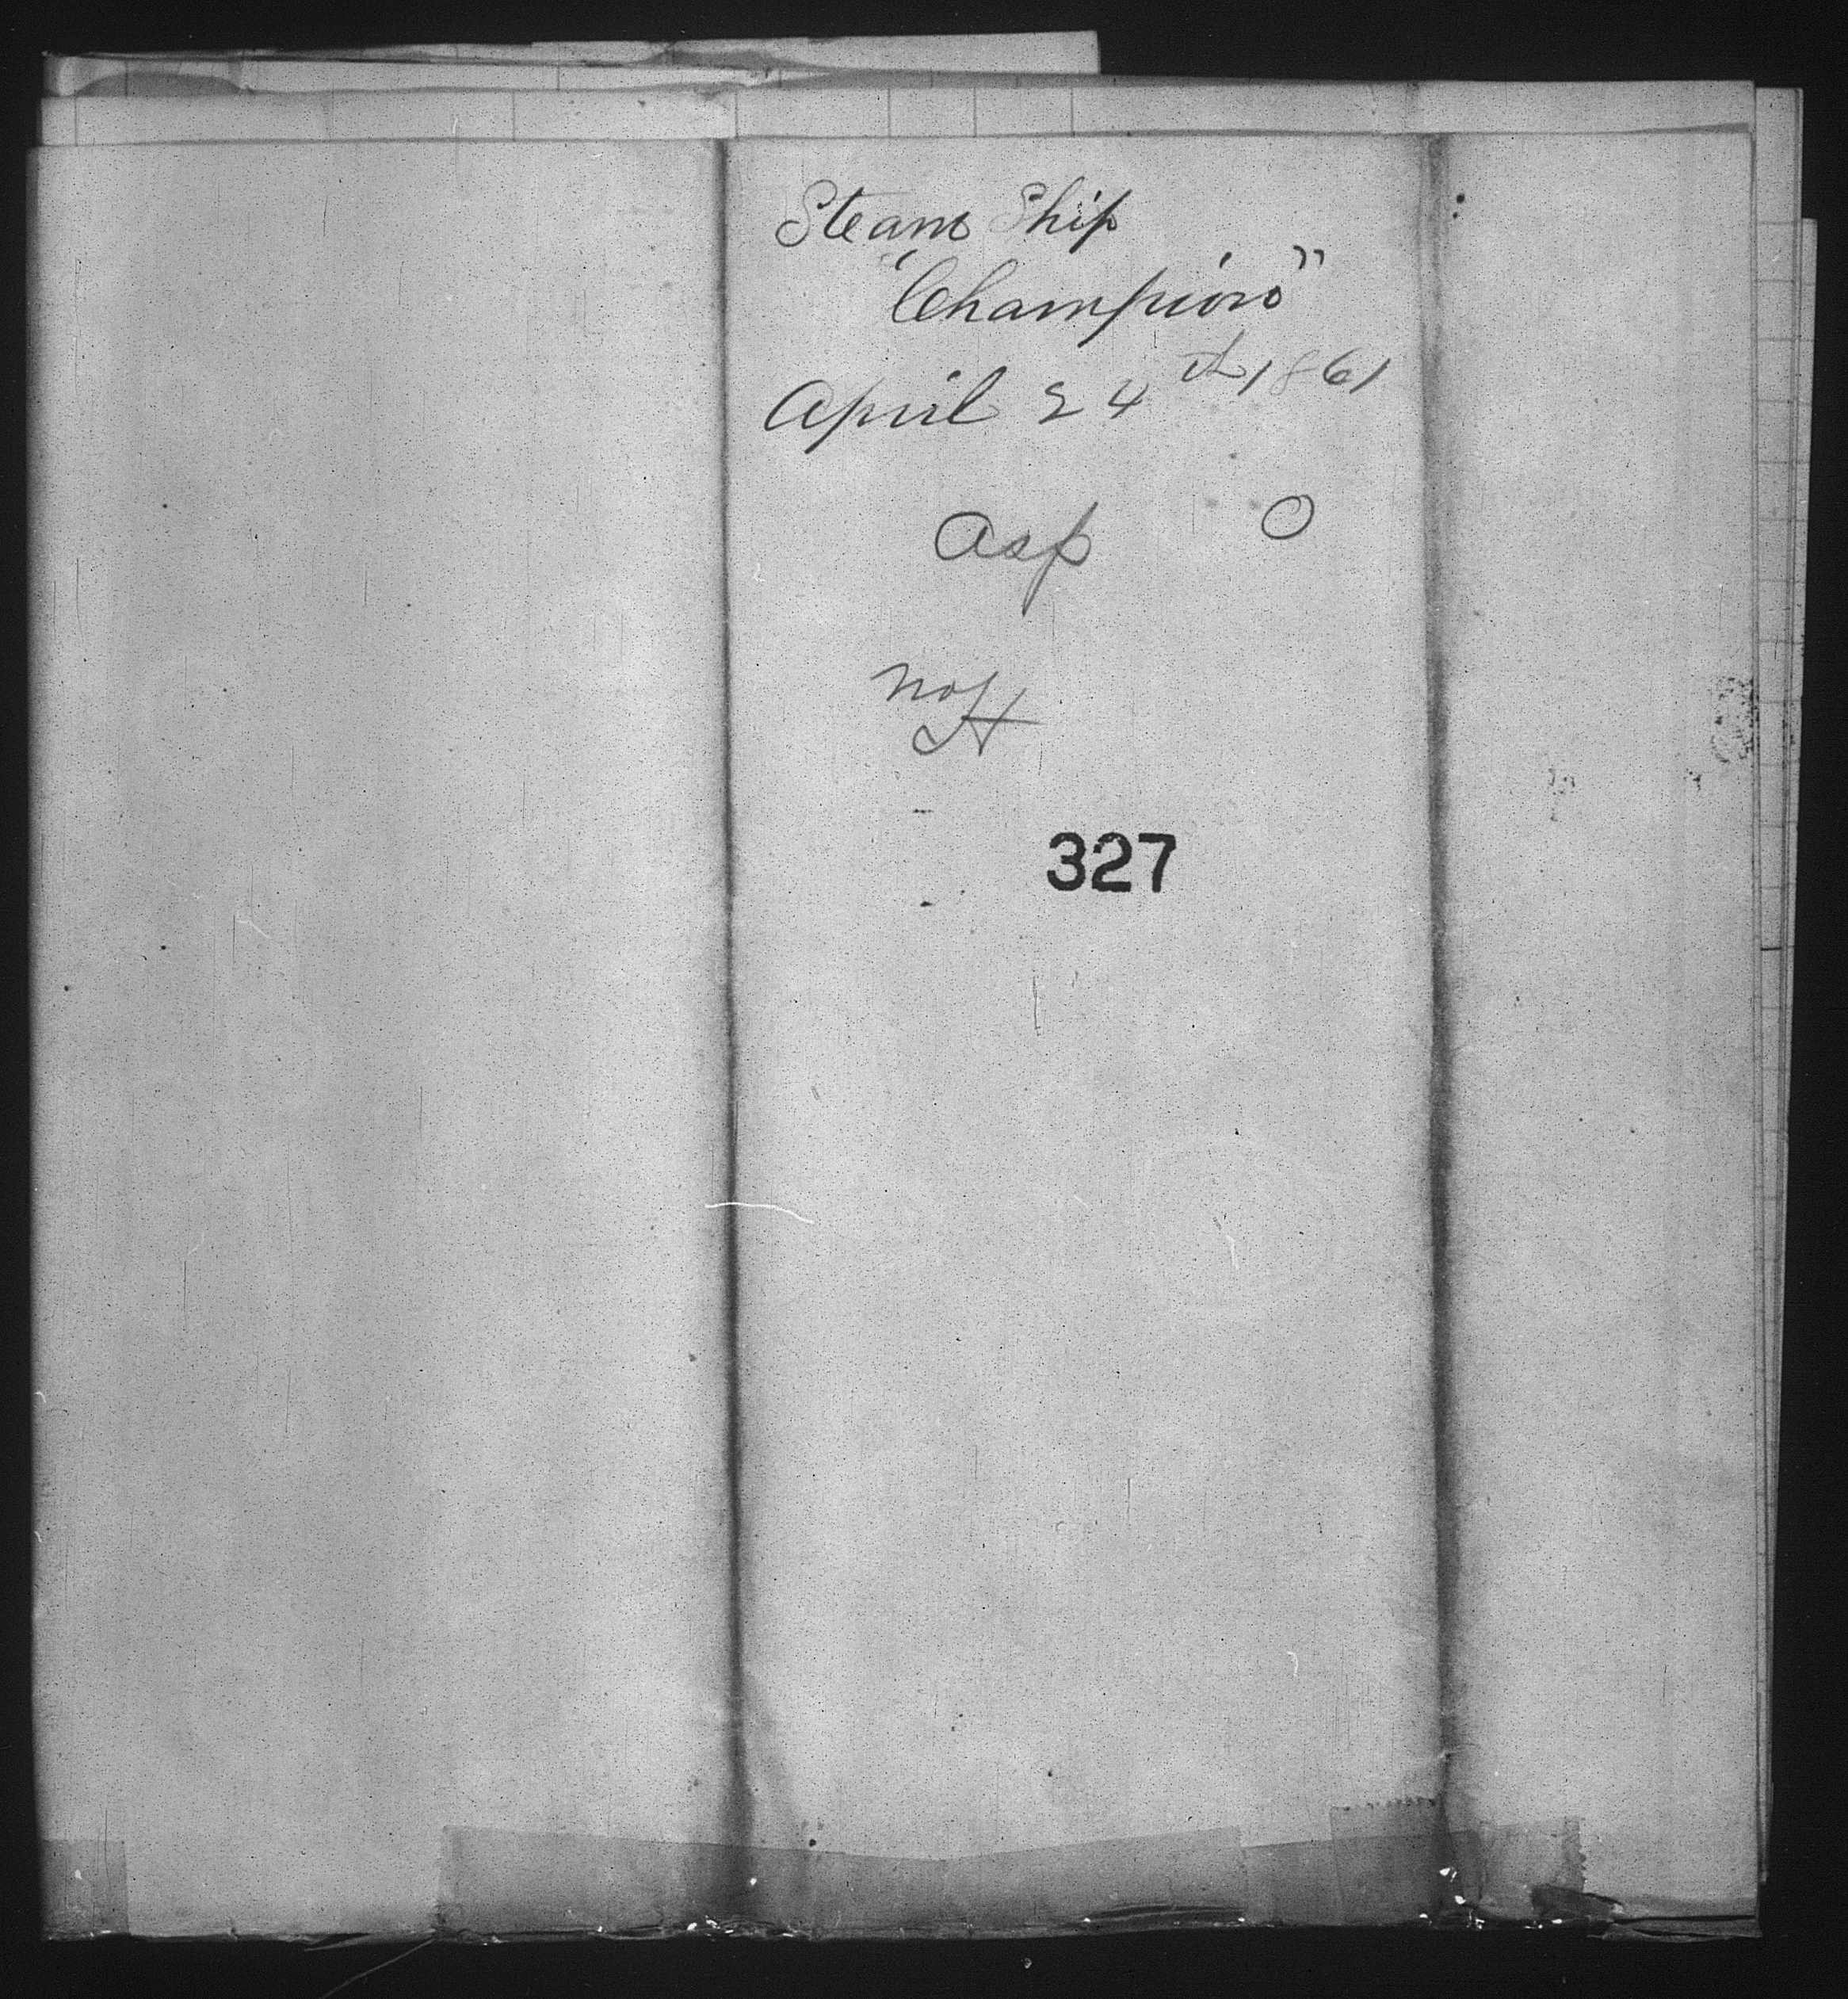 Steam Ship
"Champion"
April 24th 1861
Asp O
No
327